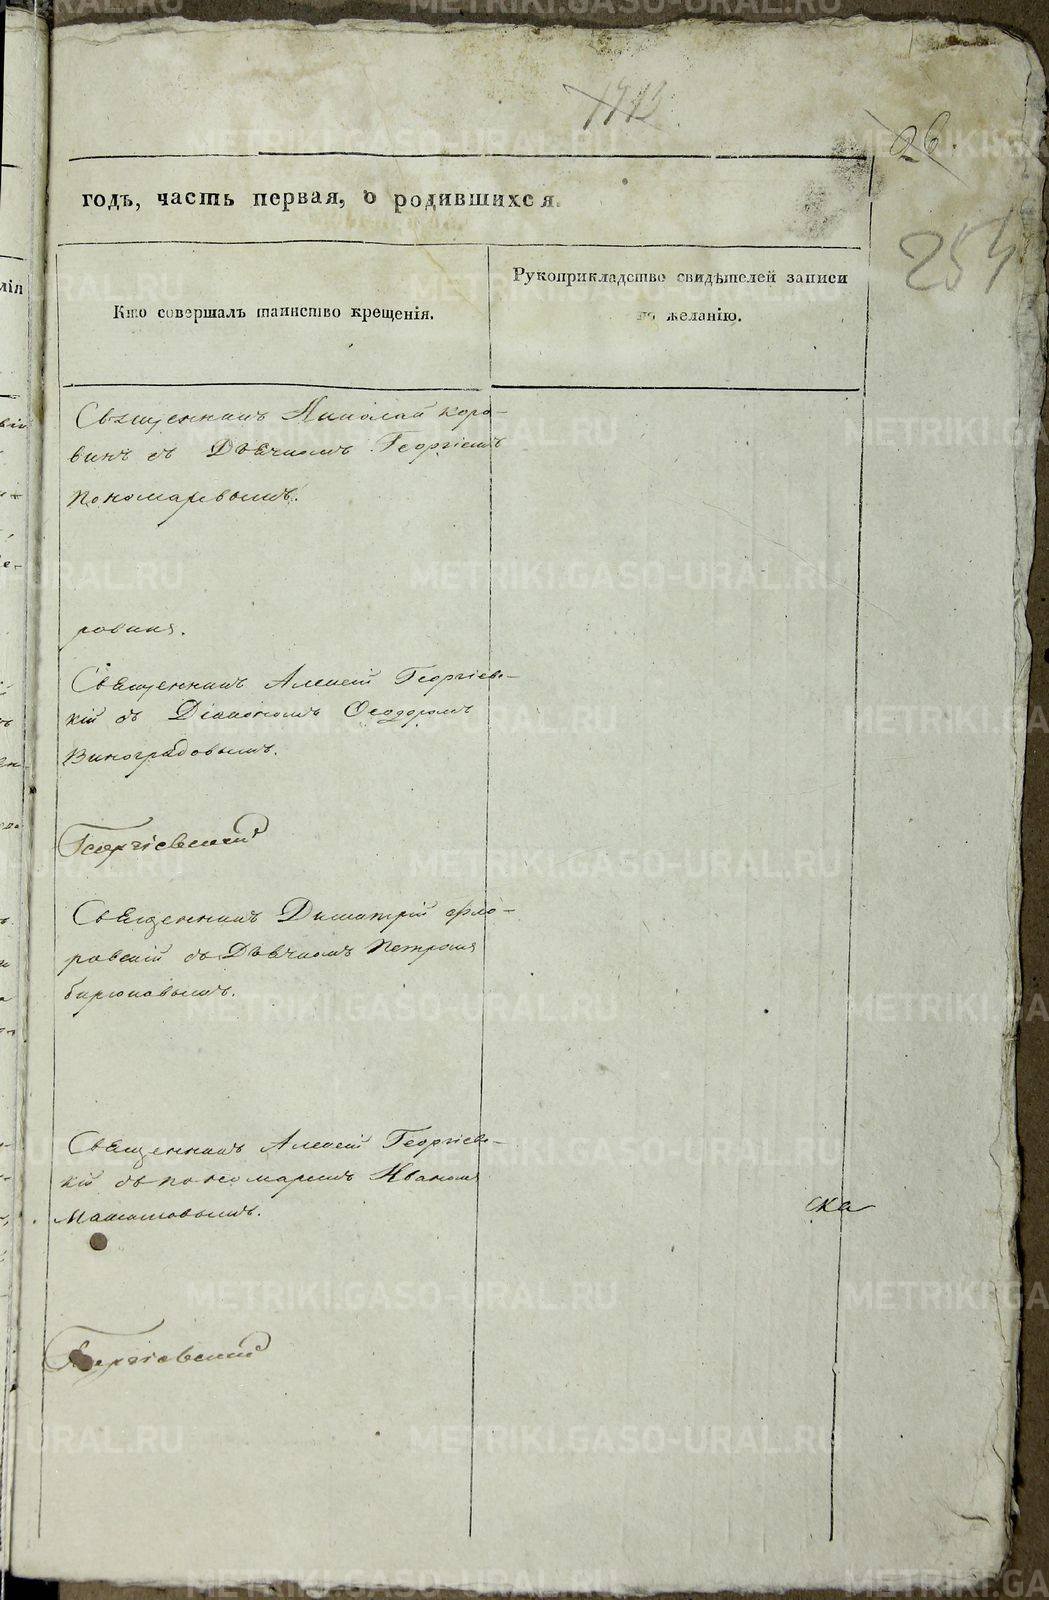 1113
26.
годъ, часть первая, о родившихся.
254
Кто совершалъ таинство крещенія.
Рукоприкладство свидѣтелей записи
по желанію.
Священникъ Николай Коро-
винъ съ Дьячкомъ Георгіемъ
Пономаревымъ.
ровина.
Священникъ Алексій Георгіевс-
кій съ Діакономъ Ѳеодоромъ
Виноградовымъ.
Георгіевскій
Священникъ Димитрій Фло-
ровскій съ Дьячкомъ Петромъ
Бирюковымъ.
Священникъ Алексій Георгіевс-
кій съ пономаремъ Иваномъ
ска
Георгіевскій
METRIKI.GASO-URAL.RU